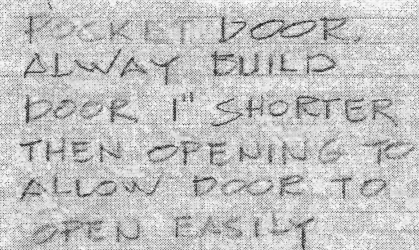 POCKET DOOR.
ALWAY BUILD
DOOR 1" SHORTER
THEN OPENING TO
ALLOW DOOR TO
OPEN EASILY